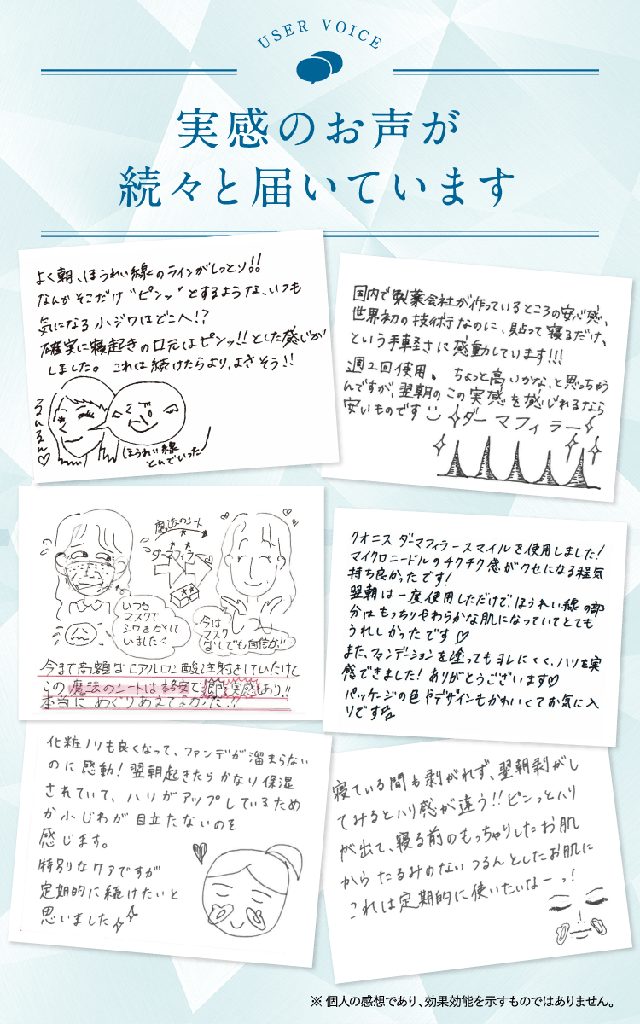 USER VOICE
実感のお声が
続々と届いています
よく朝、ほうれい線のラインがしっとり!!
なんかそこだけ"ピンッ"とするような、いつも
気になる小ジワはどこへ!?
確実に寝起きの口元はピンッ!!とした感じが
しました。これは続けたらより、よさそう!!
るんるん♡
ほうれい線
とんでいったー
国内で製薬会社が作っているところの安心感、
世界初の技術なのに、貼って寝るだけ、
という手軽さに感動しています!!!
週2回使用。ちょっと高いかな、と思っちゃう
んですが、翌朝のこの実感を感じれるなら
安いものです
ダーマフィラー
魔法のシート
ダーマフィラー
いつも
マスクで
シワをかくして
いました
今は
マスク
なしでも自信が!!
今まで高額なヒアルロン酸を注射をしていたけど
この魔法のシートは格安で
本当にめぐりあえてよかった!!
クオニス ダーマフィラースマイルを使用しました!
マイクロニードルのチクチク感がクセになる程気
持ち良かったです!
翌朝は一度使用しただけでほうれい線の部
分はもっちりやわらかな肌になっていてとても
うれしかったです♡
また、ファンデーションを塗ってもヨレにくく、ハリを実
感できました!ありがとうございます♡
パッケージの色やデザインもかわいくてお気に入
りです
化粧ノリも良くなって、ファンデが溜まらない
のに感動!翌朝起きたらかなり保湿
されていて、ハリがアップしているため
か小じわが目立たないのを
感じます。
特別なケアですが
定期的に続けたいと
思いました
寝ている間も剥がれず、翌朝剥がし
てみるとハリ感が違う!!ピンっとハリ
が出て、寝る前のもっちゃりしたお肌
からたるみのないつるんとしたお肌に
これは定期的に使いたいなーっ!
※個人の感想であり、効果効能を示すものではありません。